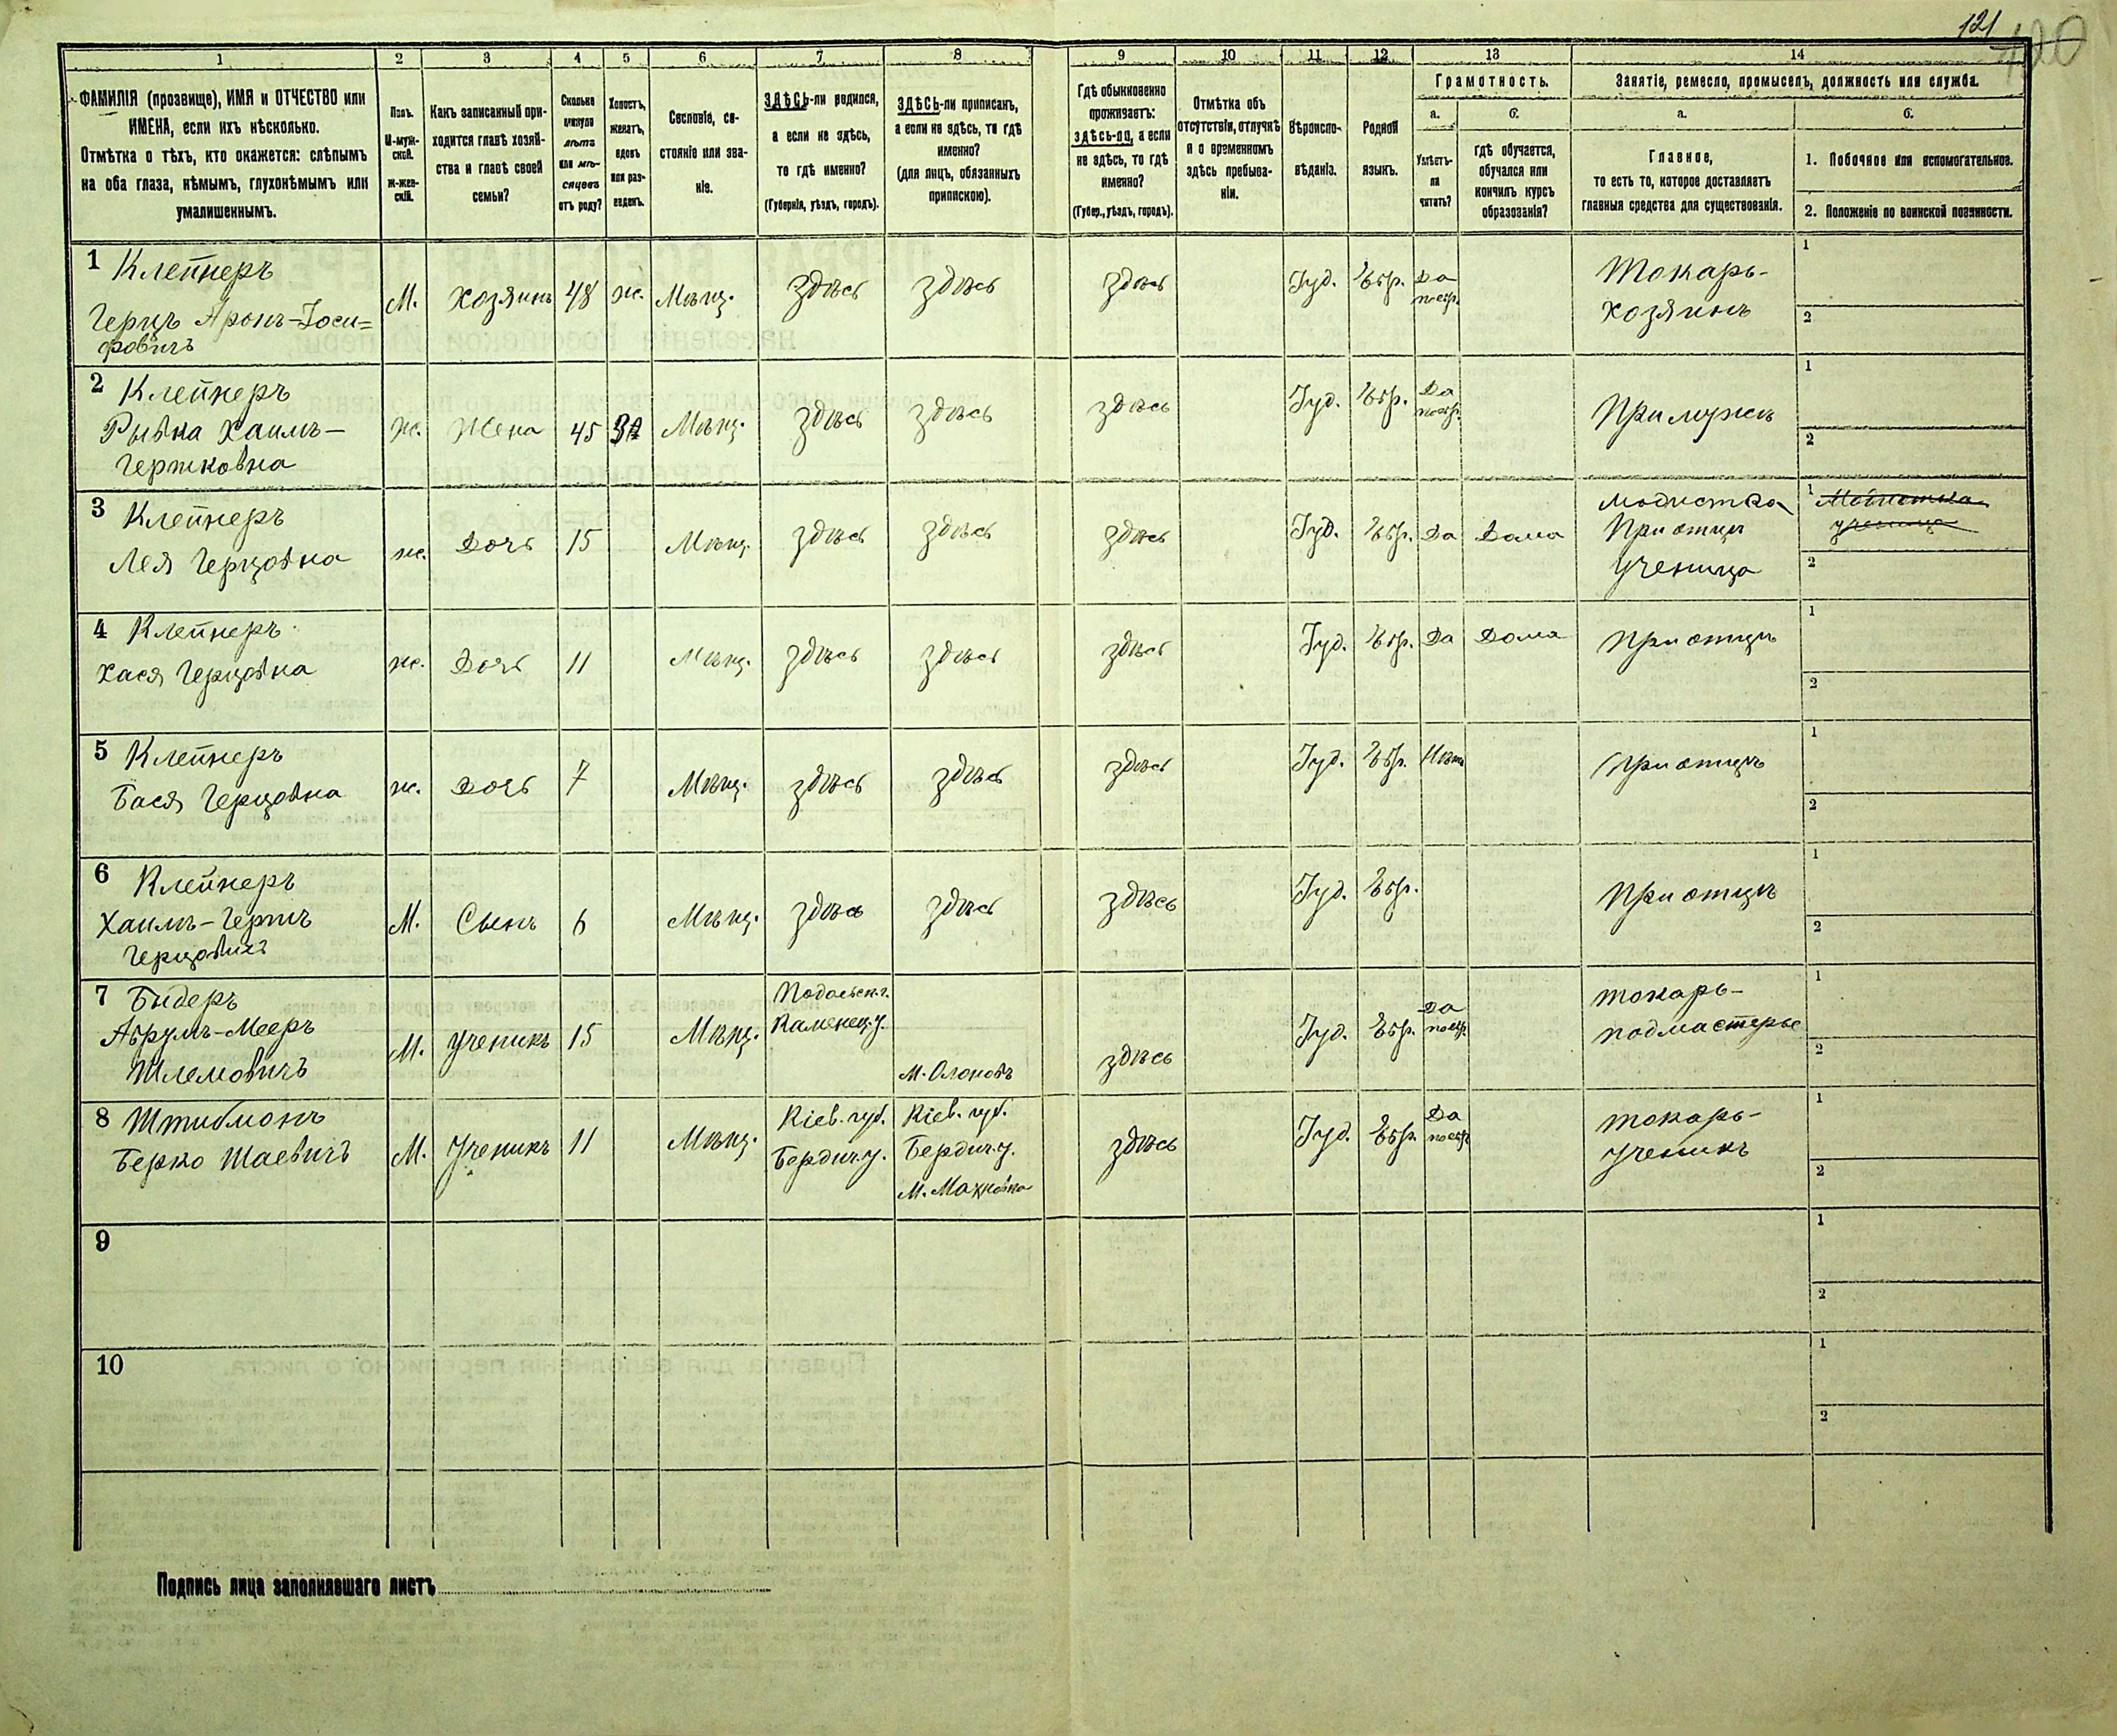 121
120
1 2 3 4 5 6 7 8 9 10 11 12 13 14
ФАМИЛІЯ (прозвище), ИМЯ и ОТЧЕСТВО или
ИМЕНА, если ихъ нѣсколько.
Отмѣтка о тѣхъ, кто окажется: слѣпымъ
на оба глаза, нѣмымъ, глухонѣмымъ или
умалишеннымъ.
Полъ.
М-муж-
ской.
ж-жен-
скій.
Какъ записанный при-
ходится главѣ хозяй-
ства и главѣ своей
семьи?
Сколько
минуло
лѣтъ
или мѣ-
сяцевъ
отъ роду?
Холостъ,
женатъ,
вдовъ
или раз-
веденъ.
Сословіе, со-
стояніе или зва-
ніе.
ЗДѢСЬ-ли родился,
а если не здѣсь,
то гдѣ именно?
(Губернія, уѣздъ, городъ).
ЗДѢСЬ-ли приписанъ,
а если не здѣсь, то гдѣ
именно?
(для лицъ, обязанныхъ
припискою).
Гдѣ обыкновенно
проживаетъ:
здѣсь-ли, а если
не здѣсь, то гдѣ
именно?
(Губер., уѣздъ, городъ).
Отмѣтка объ
отсутствіи, отлучкѣ
и о временномъ
здѣсь пребыва-
ніи.
Вѣроиспо-
вѣданіе.
Родной
языкъ.
Грамотность.
а.
Умѣетъ-
ли
читать?
б.
гдѣ обучается,
обучался или
кончилъ курсъ
образованія?
Занятіе, ремесло, промыселъ, должность или служба.
а.
Главное,
то есть то, которое доставляетъ
главныя средства для существованія.
б.
1. Побочное или вспомогательное.
2. Положеніе по воинской повинности.
1 Клейнеръ
Герцъ Аронъ-Іоси=
фовичъ
М. Хозяинъ 48 ж. Мѣщ. здѣсь здѣсь здѣсь Іуд. Евр. Да
по евр.
Токарь-
хозяинъ
1
2
2 Клейнеръ
Рывка Хаимъ-
Гершковна
ж. Жена 45 ЗА Мѣщ. здѣсь здѣсь здѣсь Іуд. Евр. Да
по евр.
При мужѣ
1
2
3 Клейнеръ
Лея Герцовна
ж. Дочь 15 Мѣщ. здѣсь здѣсь здѣсь Іуд. Евр. Да Дома
модистка
При отцѣ
Ученица
1 Модистка
ученица
2
4 Клейнеръ
Хася Герцовна
ж. Дочь 11 Мѣщ. здѣсь здѣсь здѣсь Іуд. Евр. Да Дома При отцѣ
1
2
5 Клейнеръ
Бася Герцовна
ж. Дочь 7 Мѣщ. здѣсь здѣсь здѣсь Іуд. Евр. Нѣтъ При отцѣ
1
2
6 Клейнеръ
Хаимъ-Гершъ
Герцовичъ
М. Сынъ 6 Мѣщ. здѣсь здѣсь здѣсь Іуд. Евр. При отцѣ
1
2
7 Бидеръ
Аврумъ-Мееръ
Шлемовичъ
М. Ученикъ 15 Мѣщ.
Подольск. г.
Каменец. у.
М.
здѣсь Іуд. Евр. Да
по евр.
токарь-
подмастерье
1
2
8 Штибмонъ
Берко Шаевичъ
М. Ученикъ 11 Мѣщ.
Кіев. губ.
Бердич. у.
Кіев. губ.
Бердич. у.
М. Махновка
здѣсь Іуд. Евр. Да
по евр.
токарь-
ученикъ
1
2
9
1
2
10
1
2
Подпись лица заполнявшаго листъ